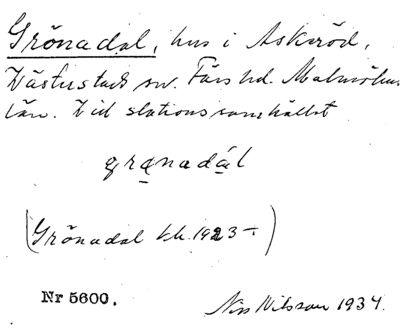 Grönadal, hus i Askeröd,
Västerstads sn. Färs hd. Malmöhus
län. Vid stationssamhället
grɑ̤nadál
(Grönadal kb. 1923 –)
Nr 5600. Nils Nilsson 1934.